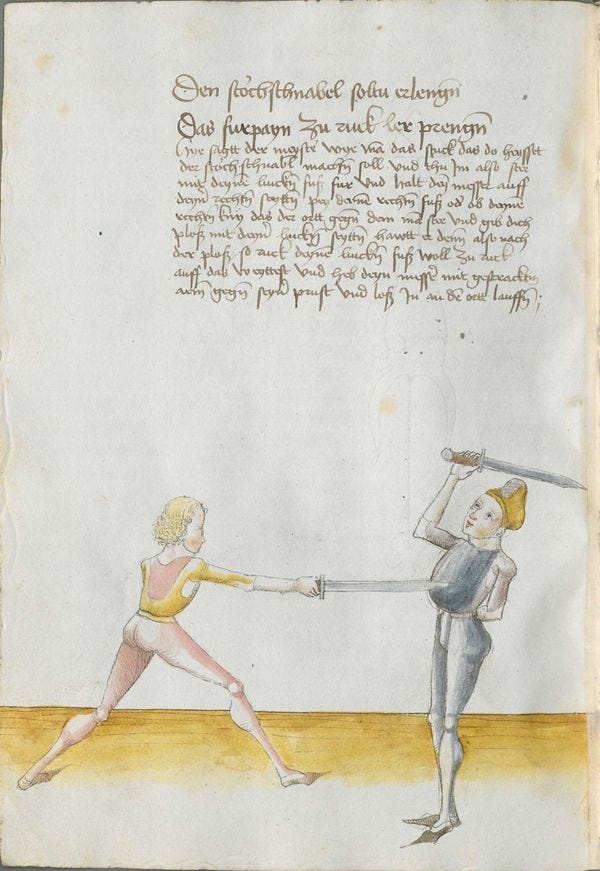 Den storchschnabel soltu erlengñ
Das furpayn zu ruck ler prengñ
Hye sagtt der meyster wye mã das stuck das do heysset
der storchschnabl machñ soll vnd thu Im also ste
mit deynẽ linckñ fuß fur vnd halt deÿ messer auff
deynẽ rechtñ seyttñ peÿ deinẽ rechtñ fuß od̃ ob deynẽ
rechtñ knÿ das der ortt gegñ dem mã ste vnd gib dich
ploß mit deynẽ linckñ seyttñ hawtt er denn also nach
der ploß so ruck deynẽ linckñ fuß woll zu ruck
auff das weyttest vnd heb deyn messer mit gestracktem
arm gegñ seynẽ prust vnd loß Jn an dẽ ortt lauffñ